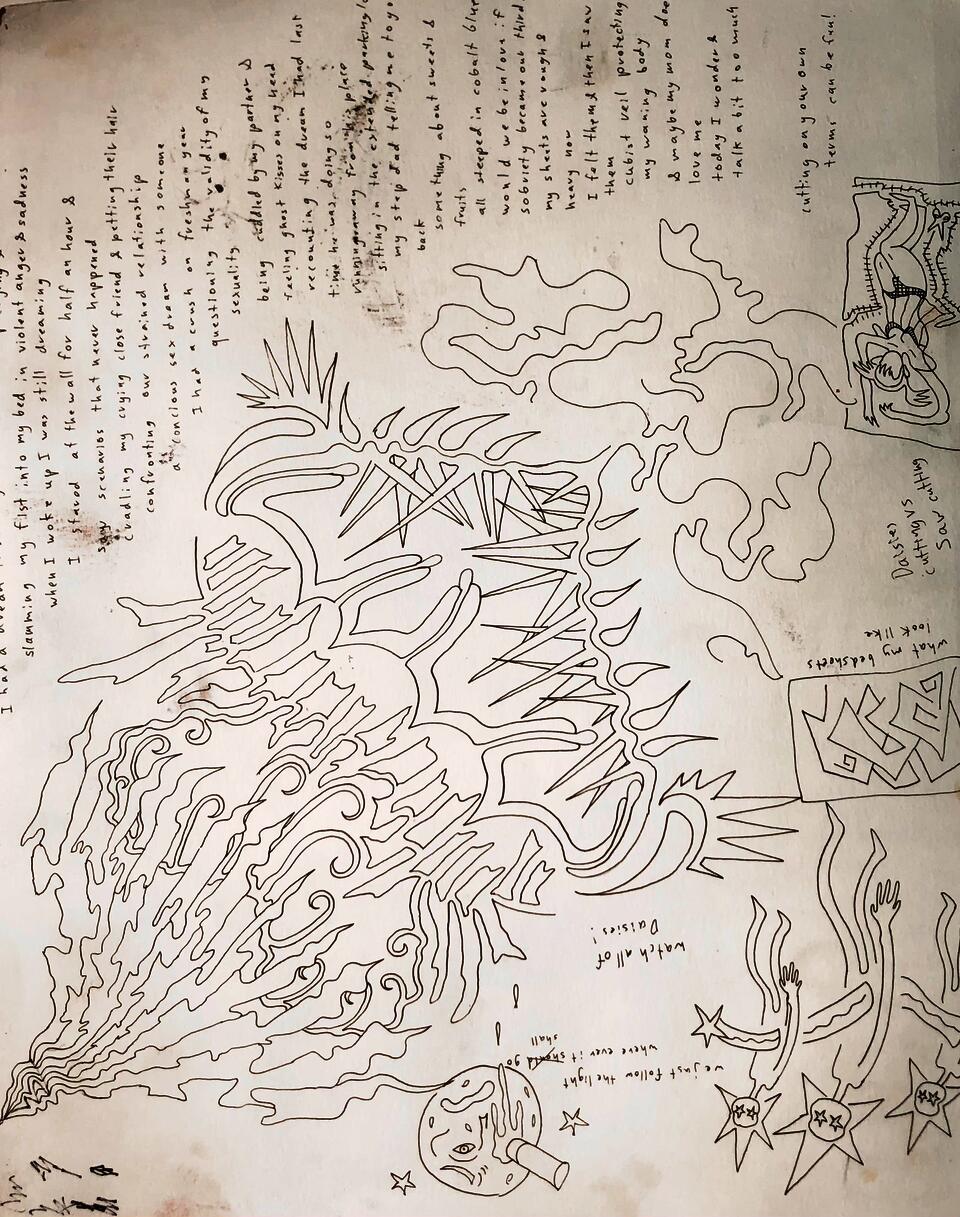 I had a dream
slamming my fist into my bed in violent anger & sadness
when I woke up I was still dreaming
I stared at the wall for half an hour &
saw scenarios that never happened
cradling my crying close friend & petting their hair
confronting our strained relationship
a concious sex dream with someone
I had a crush on freshman year
questioning the validity of my
sexuality
being cuddled by my partner &
feeling ghost kisses on my head
recounting the dream I had last
time he was doing so
running away from his place
sitting in the extended parking
my step dad telling me to go
back
something about sweets &
fruits
all steeped in cobalt blue
would we be in love if
sobriety became our third
my sheets are rough &
heavy now
I felt them & then I saw
them
cubist veil protecting
my waning body
& maybe my mom doe
love me
today I wonder &
talk a bit too much
cutting on your own
terms can be fun!
Daisies
cutting vs
Saw cutting
what my bedsheets
look like
watch all of
Daisies!
we just follow the light
where ever it should go
shall